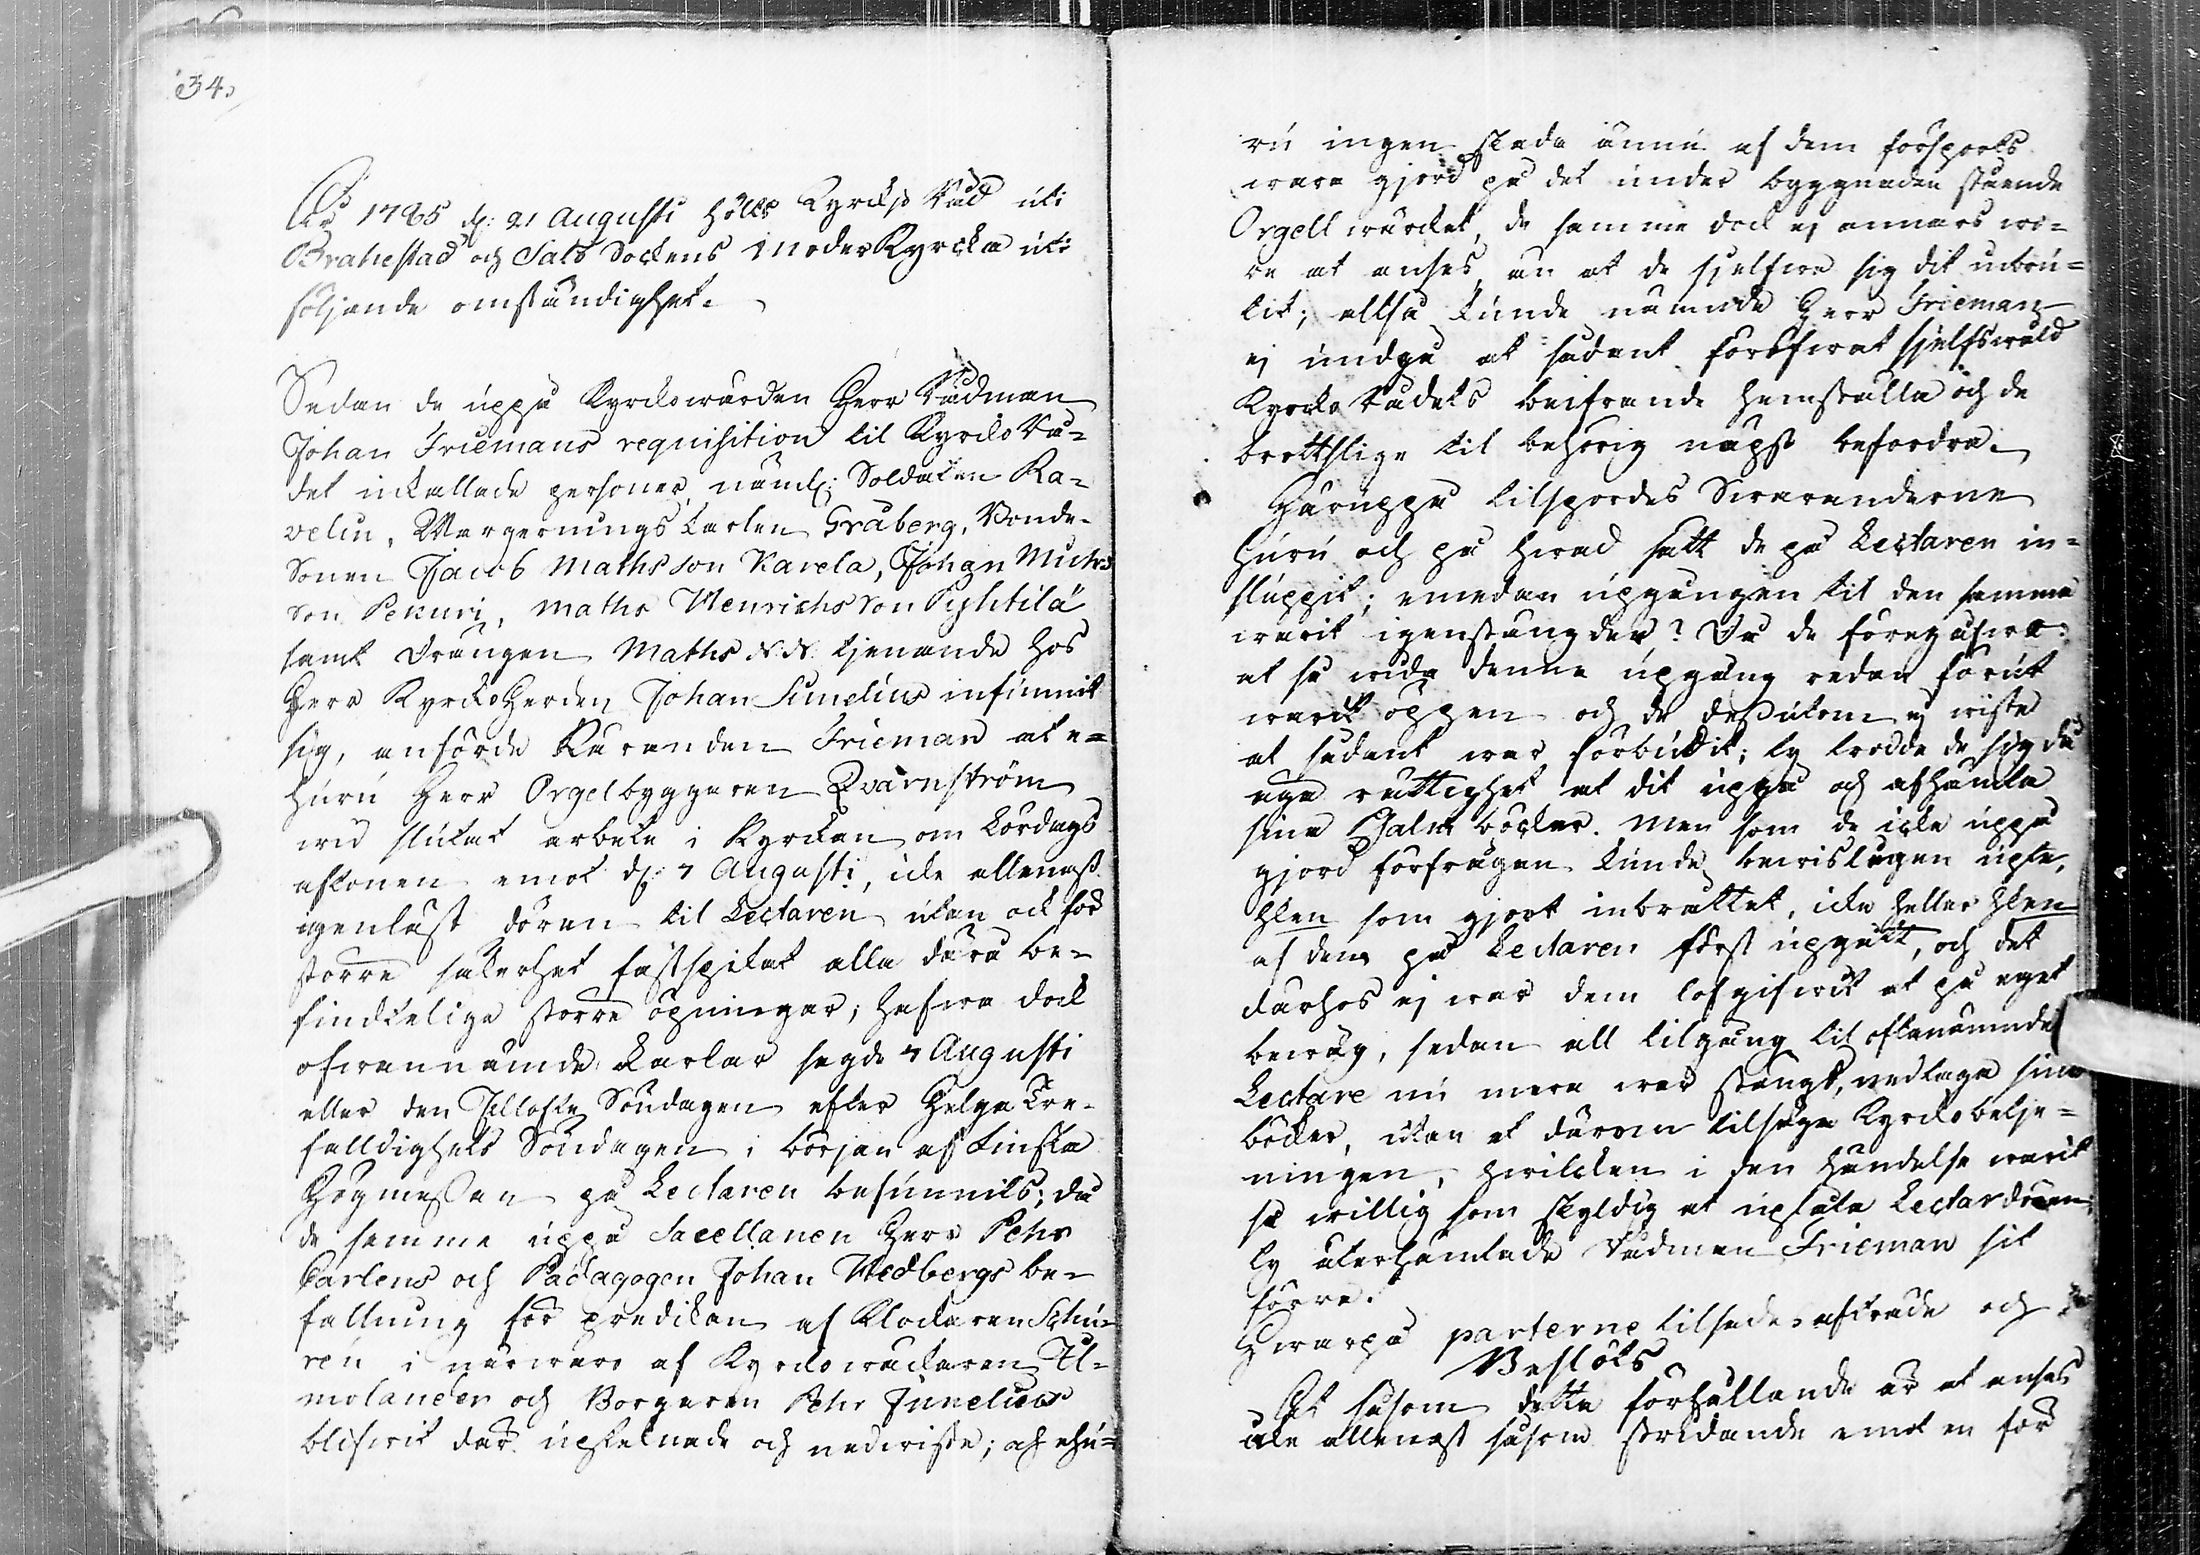 34.
År 1785 d: 21 Augusti hölts Kyrckjo Råd uti
Brahestad och Salo Sockens Moder Kyrcka uti
följande omständighet.
Sedan de uppå Kyrckowärden Herr Rådman
Johan Friemans requisition til Kyrcko Rå-
det inkallade personer, näml: Soldaten Ra-
velin, Wargerings karlen Gråberg, Bonde-
Sonen Jacob Mathsson Karela, Johan Michels
Son Pekuri, Maths Henrichs Son Pyhtilä
samt Drängen Maths N.N. tjenande hos
Herr Kyrckoherden Johan Simelius infunnit
sig, anförde Käranden Frieman at e-
huru Herr Orgelbyggaren Qvarnström
wid slutat arbete i Kyrckan om Lördags
aftonen emot d: 7 Augusti, icke allenast
igenläst dören til Lectaren utan ock för
större säkerhet fastspikat alla dära be-
findtelige större öpningar; hafwa dock
ofwannämde Karlar sagde 7 Augusti
eller den Ellofte Söndagen efter Helga Tre-
falldighets Söndagen i början af Finska
Högmessan på Lectaren befunnits; då
de samme uppå Sacellanen Herr Pehr
Carlens och Pädagogen Johan Wedbergs be-
fallning för predikan af Klockaren Schu-
rén i närwaro af Kyrckowäktaren Al-
molander och Borgaren Pehr Junelius
blifwit där upteknade och nedwiste; och ehu-
ru ingen skada ännu af dem försports
wara gjord på det under byggnaden stående
Orgell wärcket, de samme dock ej annars wo-
re at anses, än at de sjelfwe sig dit inbru-
tit; altså kunde nämnde Herr Frieman
ej undgå at sådant föröfwat sjelfswåld
Kyrcko Rådets beifrande hemställa och de
brottslige til behörig näpst befordra.
Häruppå tilspordes Swaranderne
huru och på hwad sätt de på Lectaren in-
sluppit; emedan upgången til den samma
warit igenstängder? Då de föregåfwo:
at så wida denne upgång redan förut
warit öppen och de dessutom ej wiste
at sådant war förbudit; ty trodde de sig då
äga rättighet at dit uppå och afhämta
sina Psalm böcker. Men som de icke uppå
gjord förfrågan kunde bewisligen upte,
hlen som gjort inbrottet, icke heller hlen
af dem på Lectaren först upgått, och det
därhos ej war dem lofgifwit at på eget
bewåg, sedan all tilgång til oftanämnde
Lectare nu mera war stängd, nedtaga sine
böcker, utan at därom tilsäga Kyrckobetje-
ningen, hwilcken i den händelse warit
så willig som skyldig at uplåta Lectardören,
ty återhämtade Rådman Frieman sit
förra.
Hwarpå parterne tilsades afträde och
Beslöts
At såsom detta förhållande är at anses
icke allenast såsom stridande emot en för